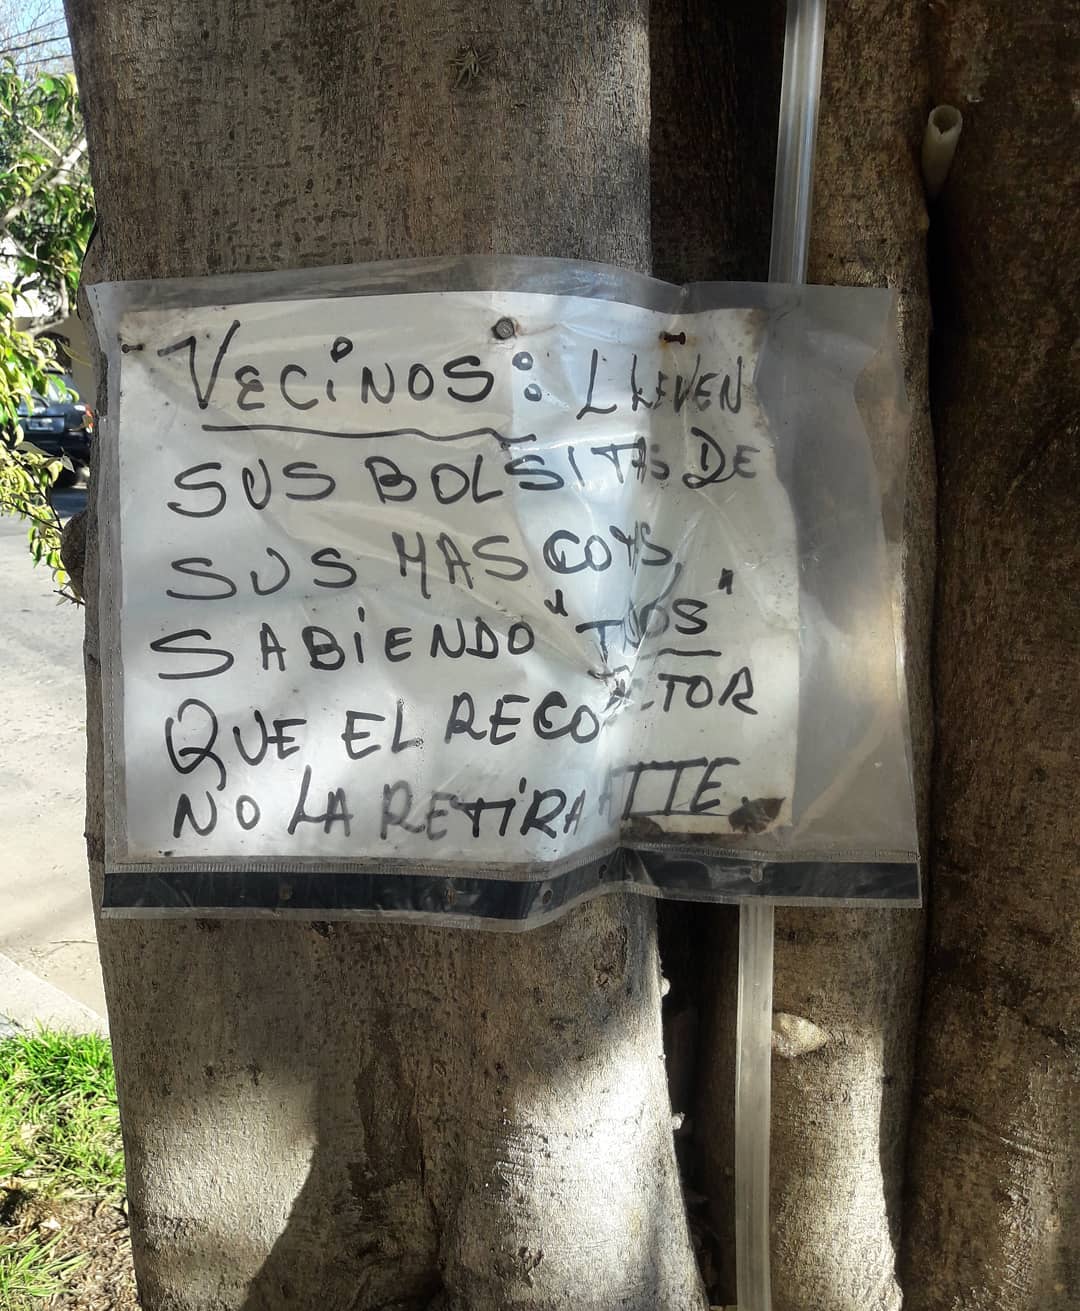 VECINOS: LLEVEN
SUS BOLSITAS DE
SUS MASCOTAS,
SABIENDO "TODOS"
QUE EL RECOLECTOR
NO LA RETIRA ATTE.